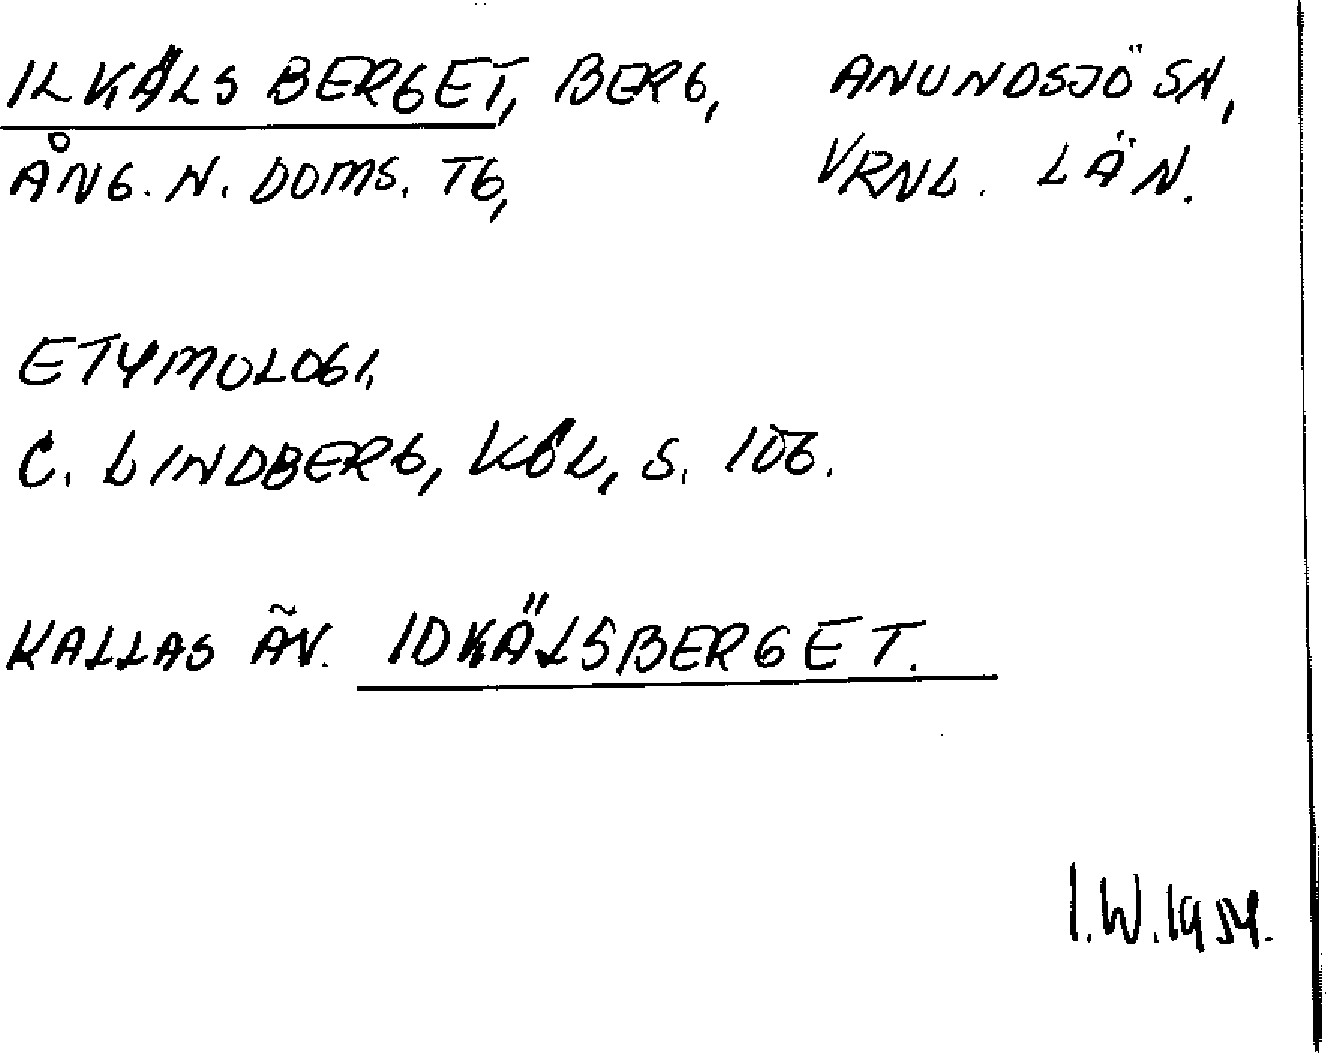 ILKÄLSBERGET, BERG, ANUNDSJÖ SN,
ÅNG. N. DOMS. TG, VRNL. LÄN.
ETYMOLOGI,
C. LINDBERG, KÖL, S. 106.
KALLAS ÄV. IDKÄLSBERGET.
I.W. 1954.